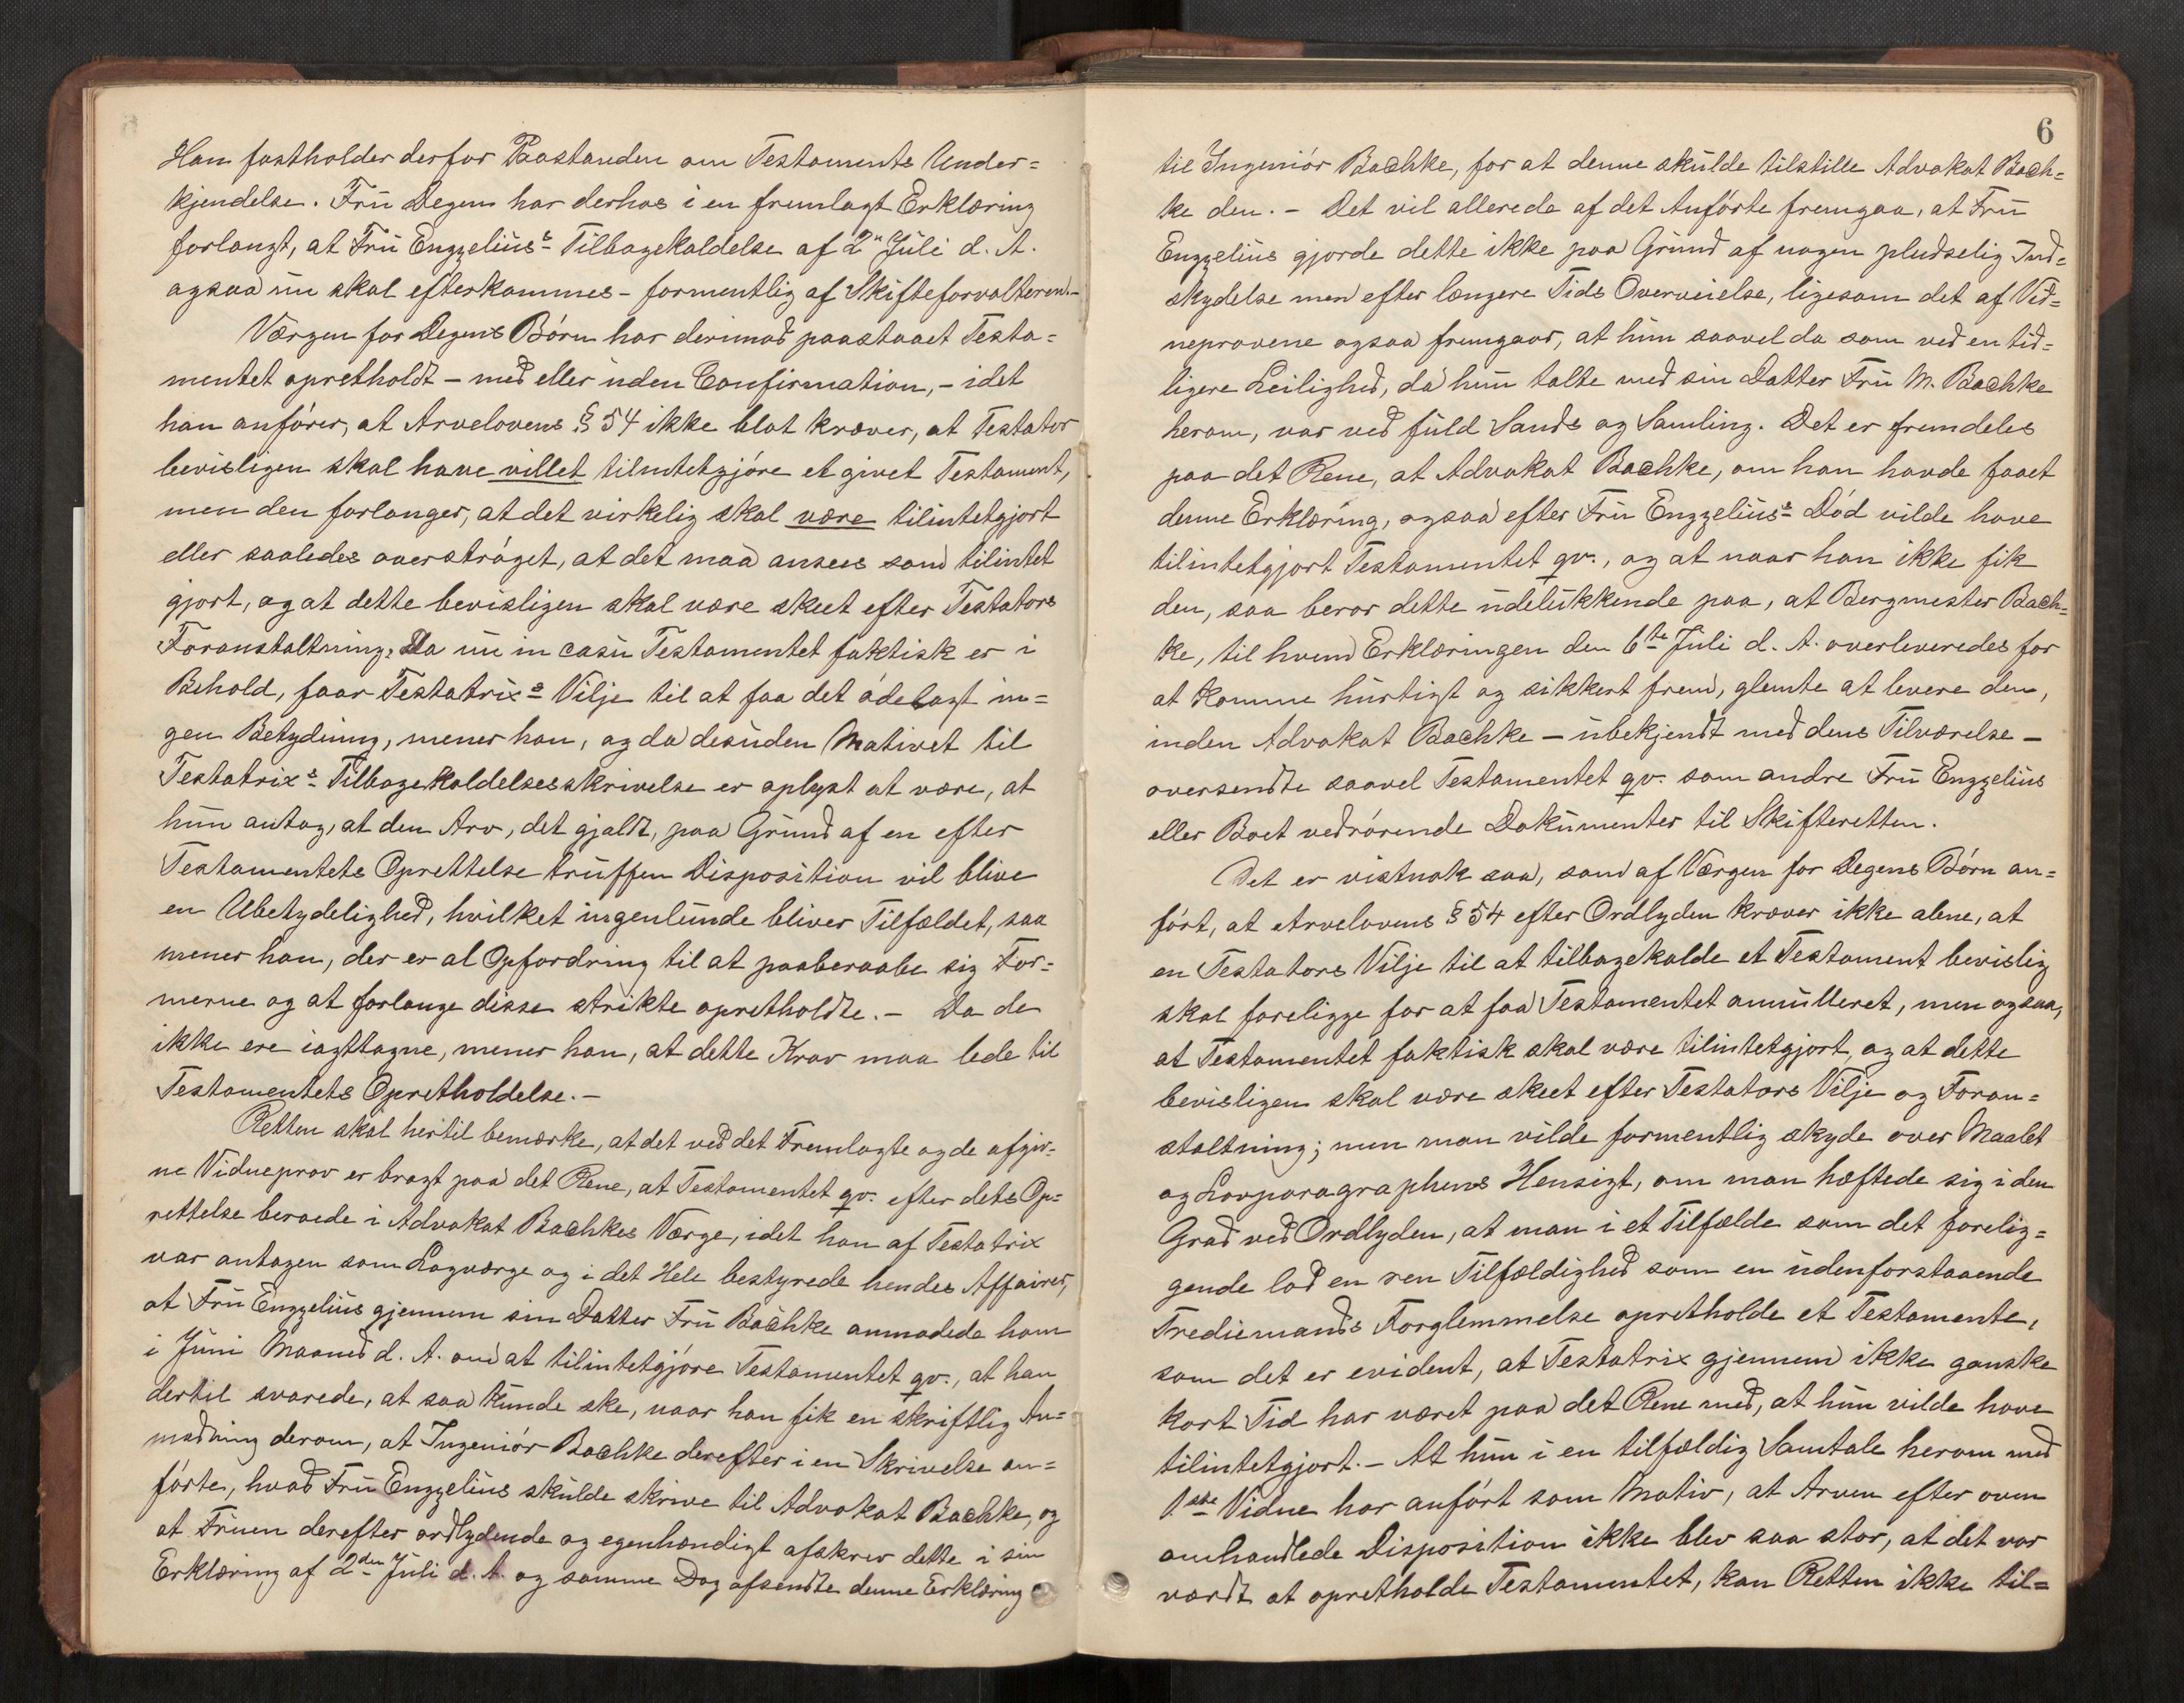 Han fastholder derfor Paastanden om Testaments Under=
kjendelse. Fru Degen har derhos i en fremlagt Erklæring
forlangt, at Fru Enggelius's Tilbagekaldelse af 2den Juli d. A.
ogsaa nu skal efterkommes – formentlig af Skifteforvalteren. –
Værgen for Degens Børn har derimod paastaaet Testa=
mentet opretholdt – med eller uden Confirmation, – idet
han anfører, at Arvelovens § 54 ikke blot kræver, at Testator
bevisligen skal have villet tilintetgjøre et givet Testament,
men den forlanger, at det virkelig skal være tilintetgjort
eller saaledes overstrøget, at det maa ansees som tilintet
gjort, og at dette bevisligen skal være skeet efter Testators
Foranstaltning. Da nu in casu Testamentet faktisk er i
Behold, faar Testatrix's Vilje til at faa det ødelagt in=
gen Betydning, mener han, og da desuden Motivet til
Testatrix's Tilbagekaldelsesskrivelse er oplyst at være, at
hun antog, at den Arv, det gjaldt, paa Grund af en efter
Testamentets Oprettelse truffen Disposition vil blive
en Ubetydelighed, hvilket ingenlunde bliver Tilfældet, saa
mener han, der er al Opfordring til at paaberaabe sig For=
merne og at forlange disse strikte opretholdte. – Da de
ikke ere iagttagne, mener han, at dette Krav maa lede til
Testamentets Opretholdelse. –
Retten skal hertil bemærke, at det ved det Fremlagte og de afgiv=
ne Vidneprov er bragt paa det Rene, at Testamentet qv. efter dets Op=
rettelse beroede i Advokat Bachkes Værge, idet han af Testatrix
var antagen som Lagværge og i det Hele bestyrede hendes Affairer,
at Fru Enggelius gjennem sin Datter Fru Bachke anmodede ham
i Juni Maaned d. A. om at tilintetgjøre Testamentet qv., at han
dertil svarede, at saa kunde ske, naar han fik en skriftlig An=
modning derom, at Ingeniør Bachke derefter i en Skrivelse an=
førte, hvad Fru Enggelius skulde skrive til Advokat Bachke, og
at Fruen derefter ordlydende og egenhændigt afskrev dette i sin
Erklæring af 2den Juli d. A. og samme Dag afsendte denne Erklæring
6
til Ingeniør Bachke, for at denne skulde tilstille Advokat Bach=
ke den. – Det vil allerede af det Anførte fremgaa, at Fru
Enggelius gjorde dette ikke paa Grund af nogen pludselig Ind=
skydelse men efter længere Tids Overveielse, ligesom det af Vid=
neprovene ogsaa fremgaar, at hun saavel da som ved en tid=
ligere Leilighed, da hun talte med sin Datter Fru M. Bachke
herom, var ved fuld Sands og Samling. Det er fremdeles
paa det Rene, at Advokat Bachke, om han havde faaet
denne Erklæring, ogsaa efter Fru Enggelius's Død vilde have
tilintetgjort Testamentet qv., og at naar han ikke fik
den, saa beror dette udelukkende paa, at Bergmester Bach=
ke, til hvem Erklæringen den 6te Juli d. A. overleveredes for
at komme hurtigt og sikkert frem, glemte at levere den,
inden Advokat Bachke – ubekjendt med dens Tilværelse –
oversendte saavel Testamentet qv. som andre Fru Enggelius
eller Boet vedrørende Dokumenter til Skifteretten.
Det er vistnok saa, som af Værgen for Degens Børn an=
ført, at Arvelovens § 54 efter Ordlyden kræver ikke alene, at
en Testators Vilje til at tilbagekalde et Testament bevislig
skal foreligge for at faa Testamentet annulleret, men ogsaa,
at Testamentet faktisk skal være tilintetgjort, og at dette
bevisligen skal være skeet efter Testators Vilje og Foran=
staltning; men man vilde formentlig skyde over Maalet
og Lovparagraphens Hensigt, om man hæftede sig i den
Grad ved Ordlyden, at man i et Tilfælde som det forelig=
gende lod en ren Tilfældighed som en udenforstaaende
Trediemands Forglemmelse opretholde et Testamente,
som det er evident, at Testatrix gjennem ikke ganske
kort Tid har været paa det Rene med, at hun vilde have
tilintetgjort. – At hun i en tilfældig Samtale herom med
1ste Vidne har anført som Motiv, at Arven efter oven
omhandlede Disposition ikke blev saa stor, at det var
værdt at opretholde Testamentet, kan Retten ikke til=